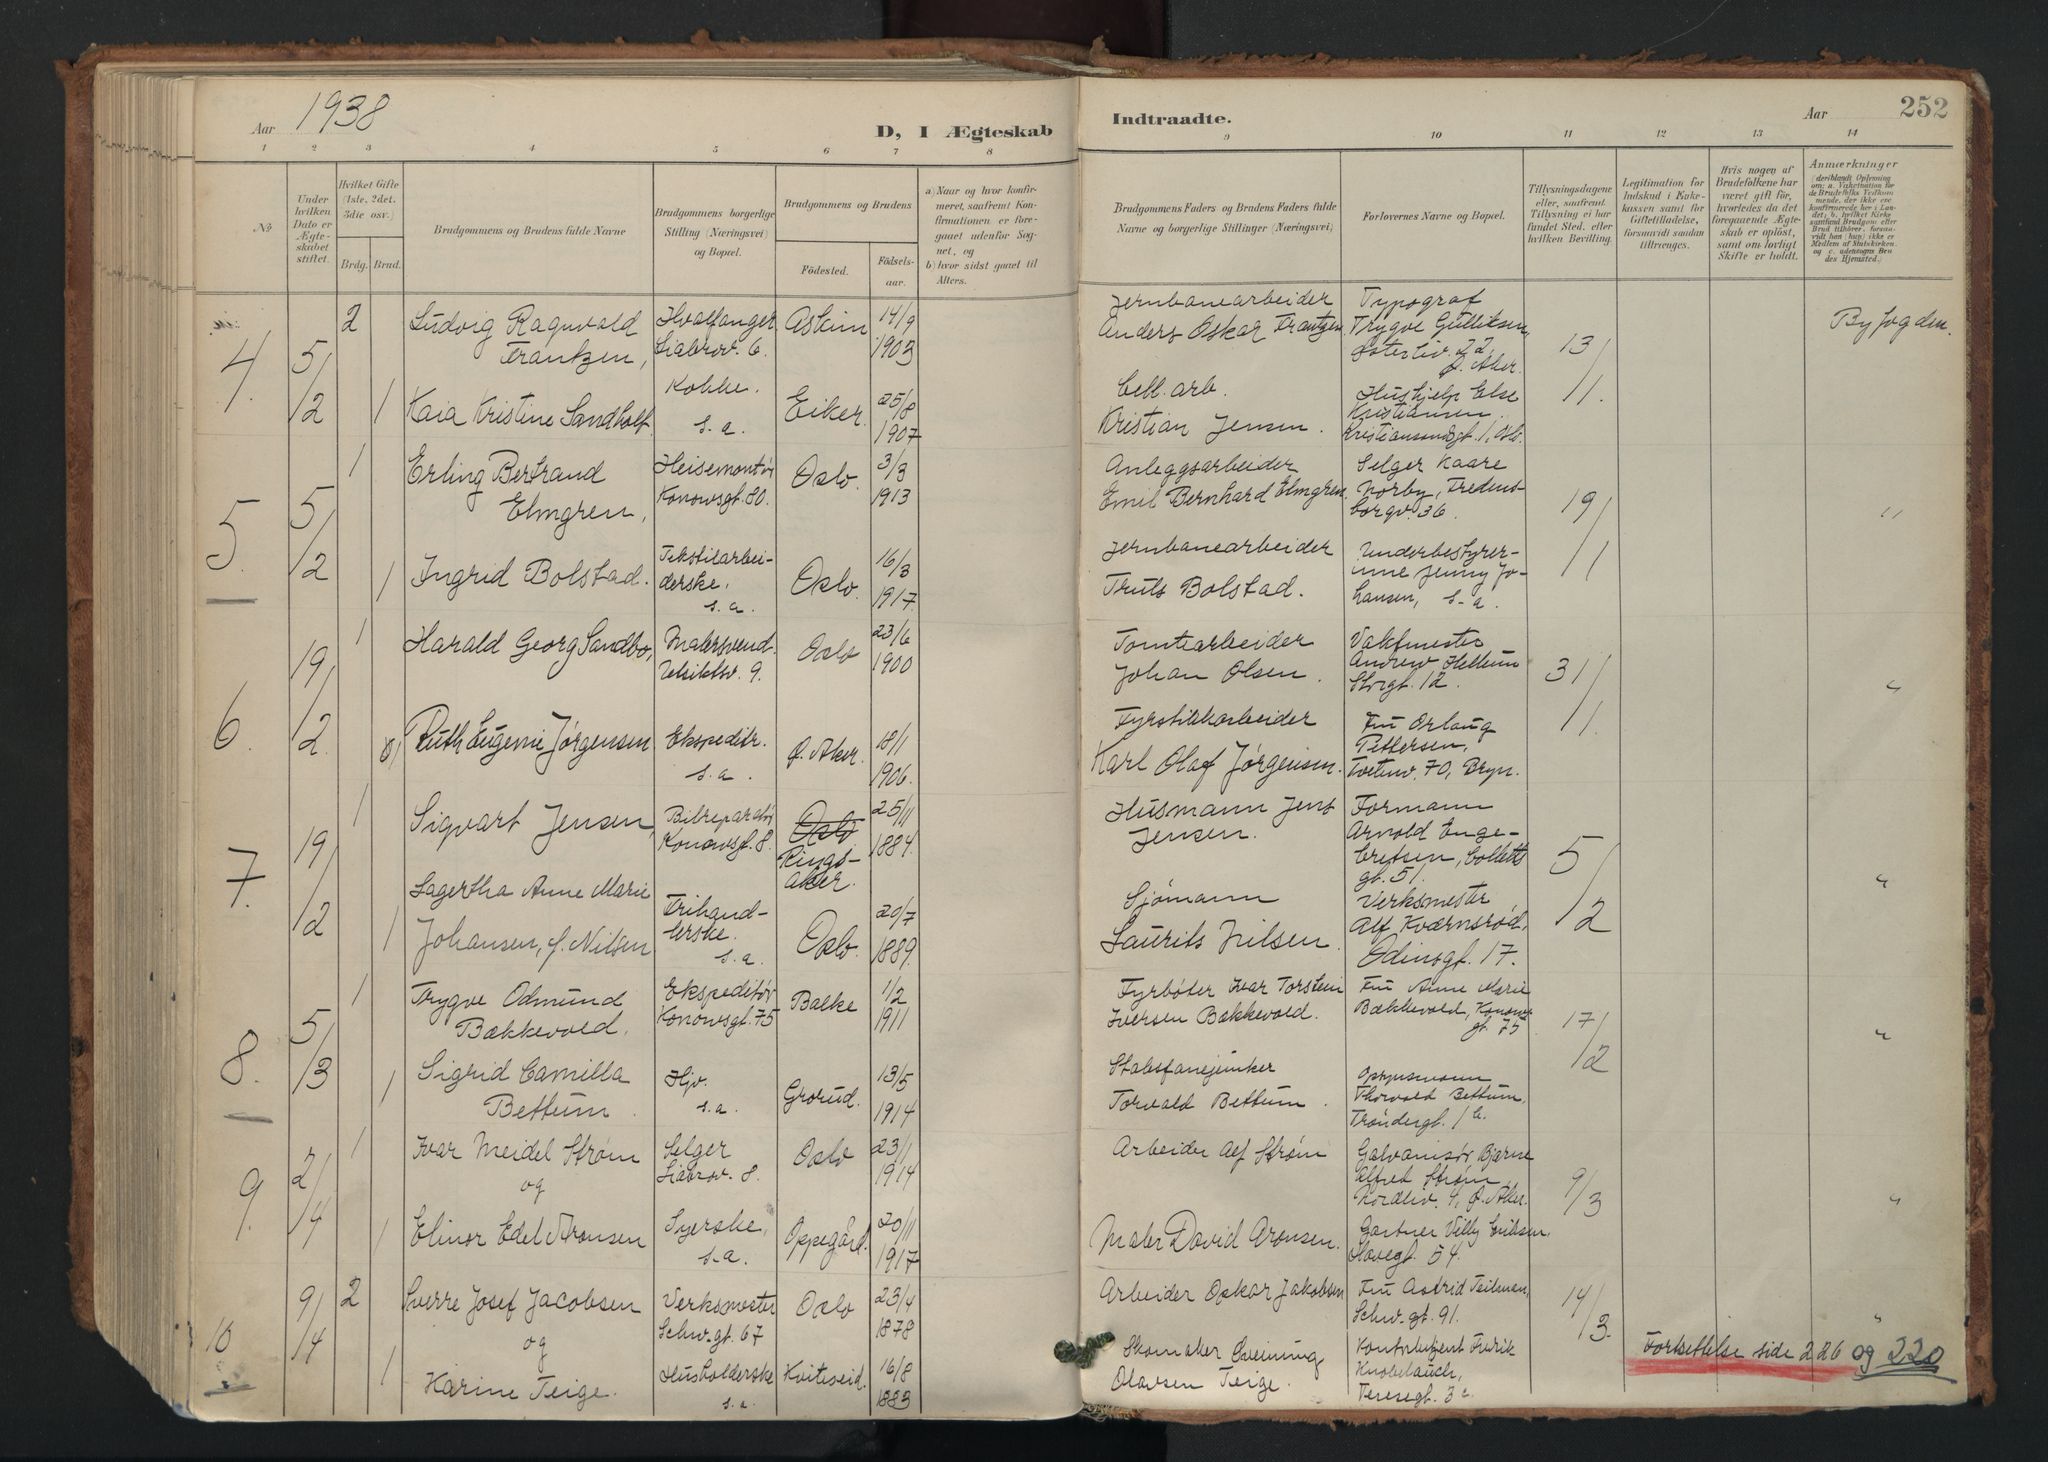 Aar 1938
D, I Ægteskab
Indtraadte.
Aar
252
1 2 3 4 5 6 7 8 9 10 11 12 13 14
No
Under hvilken Dato er Ægteskabet stiftet.
Hvilket Gifte (1ste, 2det, 3die osv.)
Brdg. Brud.
Brudgommens og Brudens fulde Navne
Brudgommens borgerlige Stilling (Næringsvei) og Bopæl.
Brudgommens og Brudens
Fødested.
Fødsels-aar.
a) Naar og hvor konfirmeret, saafremt Konfirmationen er foregaaet udenfor Sognet, og
b) hvor sidst gaaet til Alters.
Brudgommens Faders og Brudens Faders fulde Navne og borgerlige Stillinger (Næringsvei)
Forlovernes Navne og Bopæl.
Tillysningsdagene eller, saafremt Tillysning ei har fundet Sted, efter hvilken Bevilling.
Legitimation for Indskud i Enkekassen samt for Giftetilladelse, forsaavidt saadan tiltrænges.
Hvis nogen af Brudefolkene har været gift før, hvorledes da det foregaaende Ægteskab er opløst, samt om lovligt Skifte er holdt.
Anmærkninger
4. 5/2 2 Ludvig Ragnvald Frantzen, Hvalfanger Liabrov. 6. Askim 14/9 1903
Jernbanearbeider Anders Oskar Frantzen Typograf Trygve Gulliksen, Østerliv. 22, Ø. Aker. 13/1. Byfogden.
1 Kaia Kristine Sandholt. Kokke. s.a. Eiker. 25/8 1907
Cell. arb. Kristian Jensen. Hushjelp Else Kristiansen. Kristiansundsgt. 1, Oslo.
5 5/2 1 Erling Bertrand Elmgren, Heisemontør Konowsgt. 80. Oslo. 3/3 1913
Anleggsarbeider Emil Bernhard Elmgren. Selger Kaare Norby, Fredensborgv. 36. 19/1 "
1 Ingrid Bolstad. Tekstilarbeiderske. s.a. Oslo. 16/3 1917.
Jernbanearbeider Truls Bolstad. Underbestyrerinne Jenny Johansen, s.a.
6. 19/2 1 Harald Georg Sandbo, Malersvend. Utsiktsv. 9. Oslo 23/6 1900
Tomtearbeider Johan Olsen. Vaktmester Andrew Hellum Storgt. 12. 31/1. "
1 Ruth Eugenie Jørgensen Ekspeditr. s.a. Ø. Aker. 18/1 1906.
Fyrstikkarbeider Karl Olaf Jørgensen. Fru Orlaug Pettersen, Tvetenv. 70, Bryn.
7. 19/2 1 Sigvart Jensen, Bilreparatør Konowsgt. 8. Oslo Ringsaker. 25/11 1884.
Husmann Jens Jensen. Formann Arnold Engebretsen, Colletts gt. 51. 5/2 "
1 Lagertha Anne Marie Johansen, f. Nilsen Frihandlerske. s.a. Oslo. 20/7 1889.
Sjømann Laurits Nilsen. Verksmester Alf Kværnsrød, Odinsgt. 17.
8. 5/3 1 Trygve Odmund Bækkevold. Ekspeditør Konowsgt. 75 Balke 1/2 1911
Fyrbøter Ivar Torstein Iversen Bækkevold. Fru Anne Marie Bækkevold, Konows gt. 75 17/2 "
1 Sigrid Camilla Bettum. Hjv. s.a. Grorud. 13/5 1914
Stabsfanejunker Torvald Bettum. Opsynsmann Thorvald Bettum, Trøndergt. 1
9. 2/4 1 Ivar Meidel Strøm og Selger Liabrov. 8. Oslo 23/1 1914
Arbeider Alf Strøm Galvanisør Bjarne Alfret Strøm, Nordliv. 4, Ø. Aker. 9/3 "
1 Elinor Edel Aronsen Syerske, s.a. Oppegård. 20/11 1917
Maler David Aronsen. Gartner Villy Eriksen, 54.
10 9/4 2 Sverre Josef Jacobsen og Verksmester Schw.gt. 67 Oslo 23/4 1878
Arbeider Oskar Jakobsen Fru Astrid Teilman, Schw.gt. 91. 14/3. "
1 Karine Teige. Husholderske s.a. Kviteseid. 16/8 1883
Skomaker Gveining Olavsen Teige. Kontorbetjent Fredrik Knobelauch, Teresegt. 3
Fortsettelse side 226 og 220